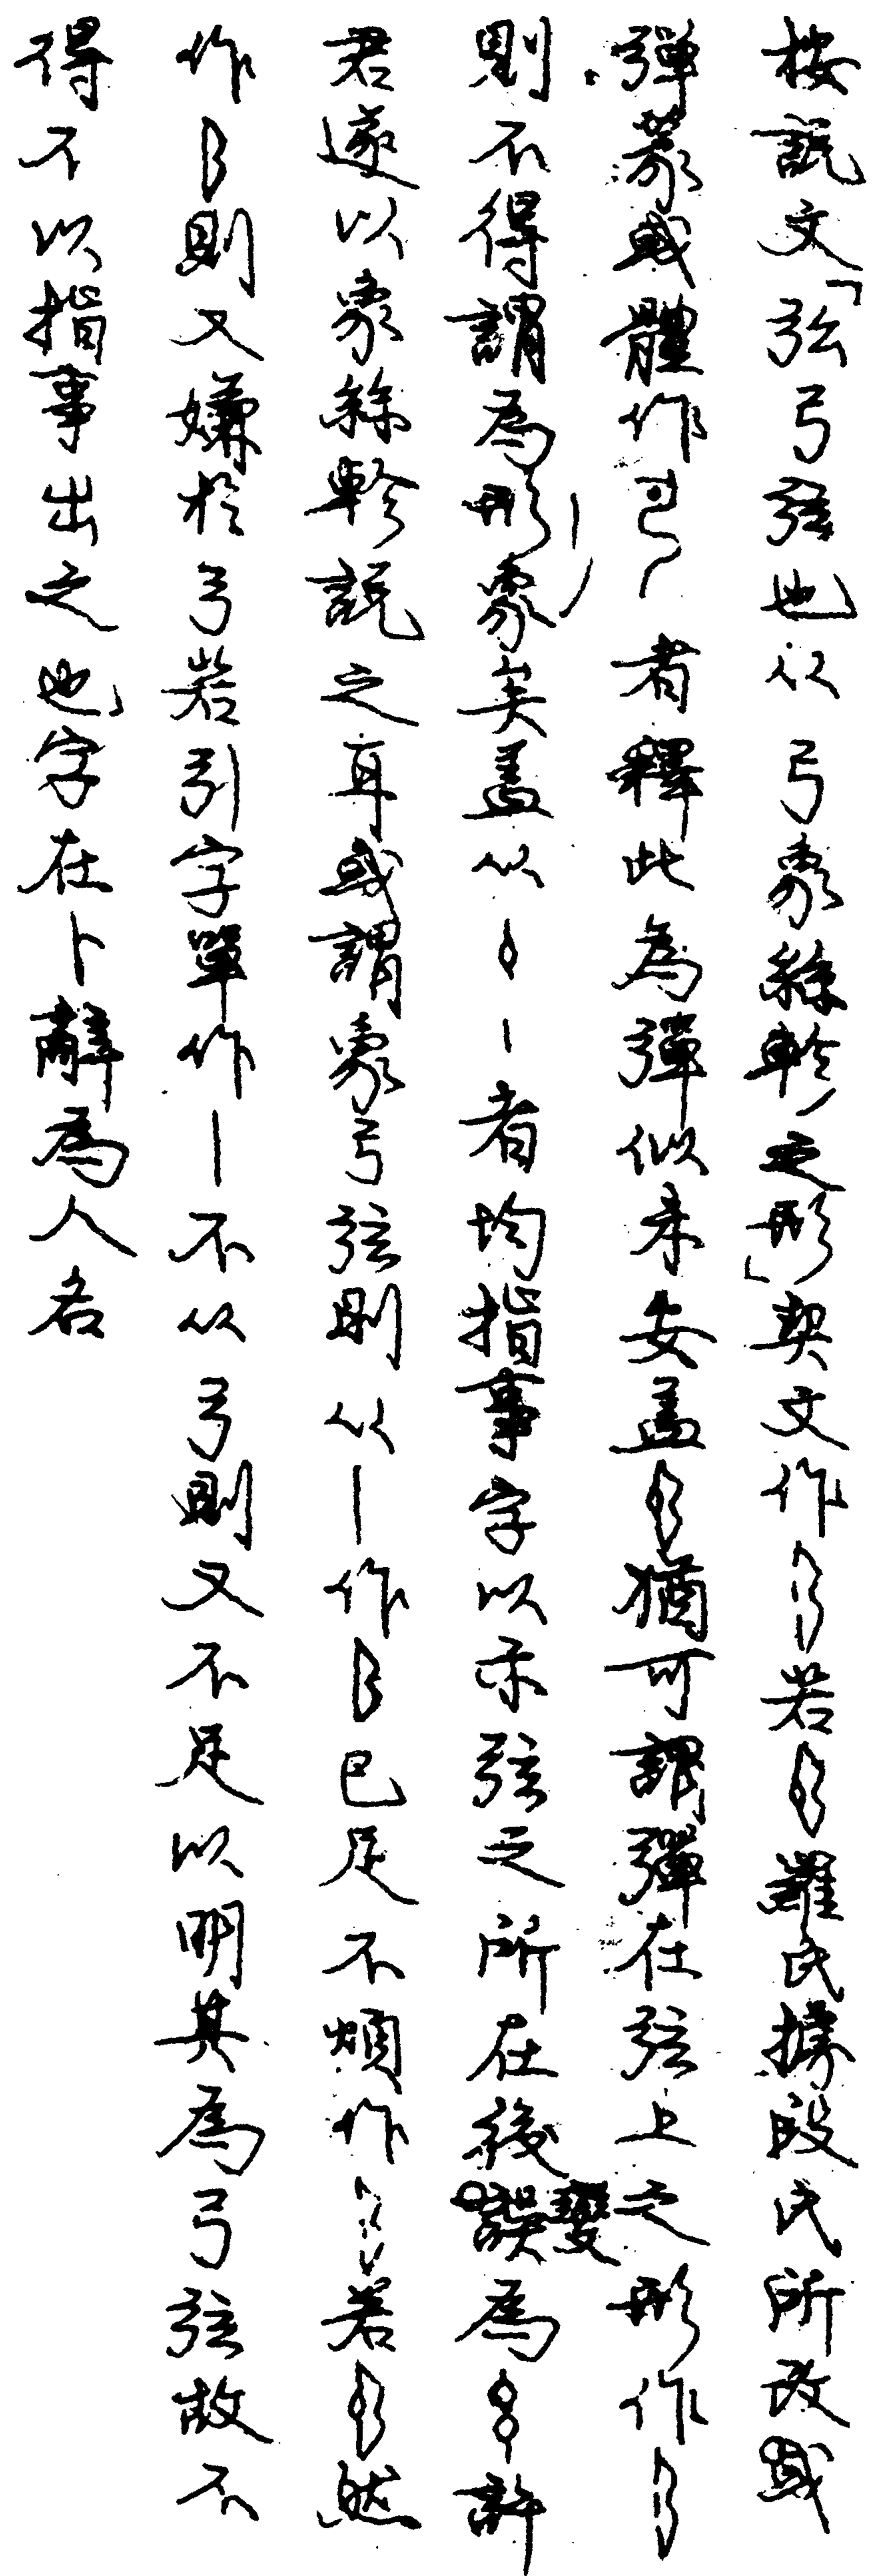 按說文「弦弓弦也从弓象絲軫之形」契文作若羅氏據段氏所改或
彈篆或體作者釋此為彈似未安盖猶可謂彈在弦上之形作
則不得謂為形象矣盖从丨者均指事字以示弦之所在後變為許
君遂以象絲軫說之耳或謂象弓弦則从丨作已足不煩作若然
作則又嫌於弓若引字單作丨不从弓則又不足以明其為弓弦故不
得不以指事出之也字在卜辭為人名